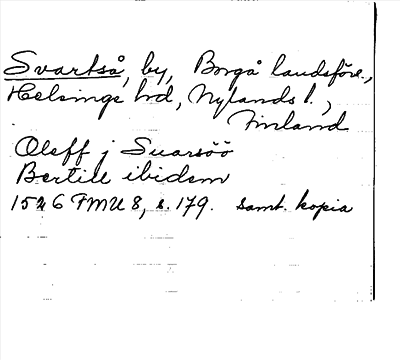 Svartså, by, Borgå landsförs.,
Helsinge hd, Nylands l.,
Finland
Oleff j Suarsöö
Bertill ibidem
1526 FMU 8, s. 179. samt. kopia